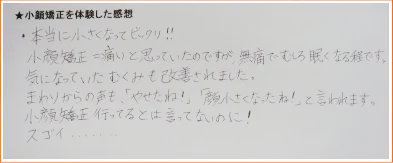 ★小顔矯正を体験した感想
・本当に小さくなってビックリ!!
小顔矯正=痛いと思っていたのですが、無痛でむしろ眠くなる程です。
気になっていたむくみも改善されました。
まわりからのあも、「やせたね!」「顔小さくなったね!」と言われます。
小顔矯正行ってるとは言ってないのに!
スゴイ......